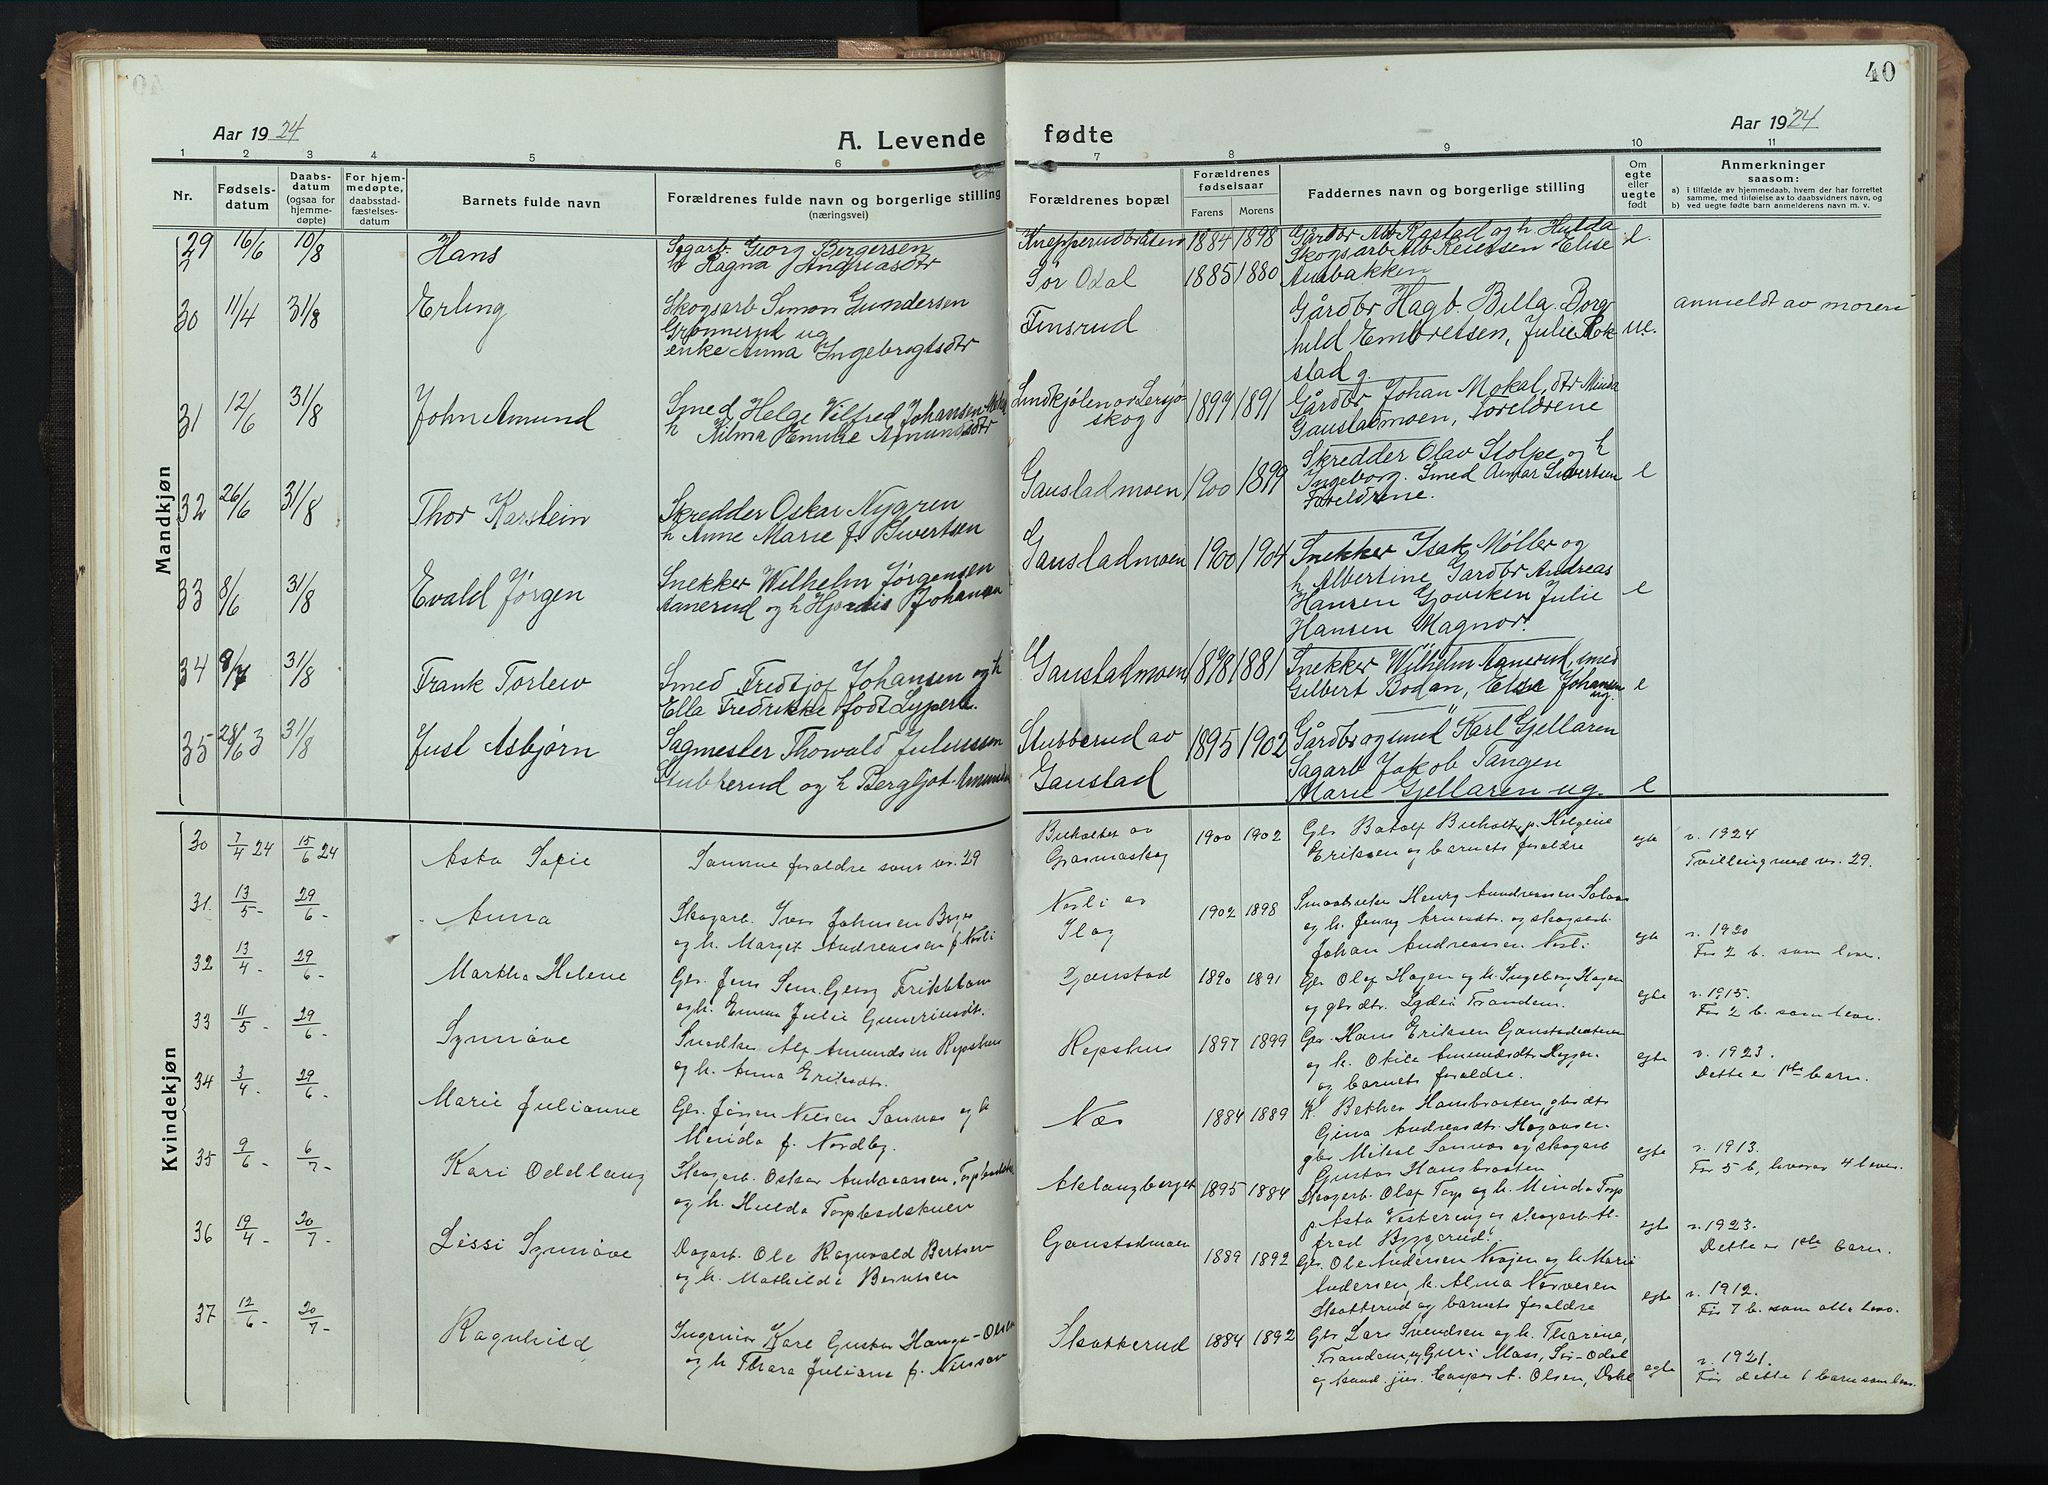 Aar 1924
A. Levende fødte
40
Aar 1924
1 2 3 4 5 6 7 8 9 10 11
Nr.
Fødsels-
datum
Daabs-
datum
(ogsaa for
hjemme-
døpte)
For hjem-
medøpte,
daabsstad-
fæstelses-
datum
Barnets fulde navn
Forældrenes fulde navn og borgerlige stilling
(næringsvei)
Forældrenes bopæl
Forældrenes
fødselsaar
Farens Morens
Faddernes navn og borgerlige stilling
Om
egte
eller
uegte
født
Anmerkninger
saasom:
a) i tilfælde av hjemmedaab, hvem der har forrettet
samme, med tilføielse av to daabsvidners navn, og
b) ved uegte født barn anmelderens navn m. v.
Mandkjøn
29 16/6 10/8 Hans
Sagarb Georg Bergersen
h Ragna Andreasdtr
Knepperudbråten 1884 1898
Gårdbr Alb Rastad og h Hulda
Skogsarb Alb Reiersen Elise
Ausbakken
e.
30 11/4 31/8 Erling
Skogsarb Simon Gundersen
Grønnerud ug
enke Anna Ingebregtsdtr
Sør Odal 1885 1880
Finsrud
Gårdbr Hagb. Billa, Borg
hild Embretsen, Julie Rok
stad g.
ue.
anmeldt av moren
31 12/6 31/8 John Amund
Smed Helge Vilfred Johansen
h Hilma Amundsdtr
skog 1899 1891
Gårdbr Johan Mokal, dtr Minda
Gaustadmoen, Foreldrene
32 26/6 31/8 Thor Karstein
Skredder Oskar Nygren
h Anne Marie f. Sivertsen
Gaustadmoen 1900 1899
Skredder Olav Stolpe og h
Ingeborg. Smed Anmar Sivertsen
Foreldrene.
e
33 8/6 31/8 Evald Jørgen
Snekker Wilhelm Jørgensen
Aanerud og h Hjørdis Johansen
Gaustadmoen 1900 1904
Snekker Isak Møller og
h Albertine, Gårdbr Andreas
Hansen Gjovsken Julie
Hansen Magnor.
e
34 31/8 Frank Torleiv
Smed Fredtjof Johansen og h
Ella Fredrikke født Lyperd.
Gaustadmoen 1898 1881
Snekker Wilhelm Aanerud, smed
Gilbert Bodan, Else Johansen
ug.
e
35 28/6 31/8 Just Asbjørn
Sagmester Thorvald Juliussen
Stubberud og h Bergljot Amundsd
Stubberud av
Gaustad 1895 1902
Gårdbr og smed Karl Gjellaren
Sagarb Jakob Tangen
Marie Gjellaren ug.
e
Kvindekjøn
30 7/4 24 15/6 24 Asta Sofie
Samme foraldre som nr. 29
Buholtet av
Grasmoskog 1900 1902
Gbr Batolf Buholtet, p. Helgine
Eriksen og barnets foraldre
egte
v. 1924
Tvilling med nr. 29.
31 13/5 - 29/6 - Anna
Skogarb. Iver Johnsen Byes
og h. Marget Andreassen f. Nosli
Nosli av
Ilag 1902 1898
Smaabruker Henry Andreassen
og h. Jenny Arnesdtr. og skogsarb.
Johan Andreassen Nosli
egte
v. 1920
Før 2 b. som lever.
32 13/4 - 29/6 - Martha Helene
Gbr. Jens Sem. Georg
og h. Emma Julie Gunriusdt.
Gaustad 1890 1891
Gbr Olaf Hagen og h. Ingeborg Hagen
og gbr dtr. Lydei Trandem.
egte
v. 1915.
Før 2 b. som lever.
33 11/5 - 29/6 - Synnøve
Snedker Alf Amundsen Repshus
og h. Anna Eriksdt.
Repshus 1897 1899
Gbr. Hans Eriksen
og h. Otilie Amundsdt
og barnets foraldre.
egte
v. 1923.
Dette er 1ste barn.
34 3/4 - 29/6 - Marie Julianne
Gbr. Jørgen Nilsen Sannæs og h
Merida f. Nordby.
Næs 1884 1889
K. Bethea Hansbraaten, gbr dt
Gina Andreasdt. Haganser.
gbr Mikal Sannæs og skogarb
Gustav Hansbraaten
egte
v. 1913.
Før 5 b, hvorav 4 lever.
35 9/6 - 6/7 - Kari Oddlaug
Skogarb. Oskar Andreassen,
og h. Hulda Torpbadskuen
Aklangberget 1895 1884
Skogarb. Olaf Torp og h. Minda Torp
p. Asta Vestereng og skogarb. Al-
fred Byggerud.
egte
v. 1923.
Dette er 1ste barn.
36 19/4 - 20/7 - Lissi Synnøve
Dagarb. Ole Ragnvald Bertsen
og h. Mathilde Berntsen
Gaustadmoen 1889 1892
Gbr. Ole Andersen og h. Marie
Andersen, h. Alma
Skotterud og barnets foraldre
egte
v. 1912.
Før 7 b. som alle lever.
37 12/6 - 20/7 - Ragnhild
Ingeniør Kare Gustav Hauge-Olsen
og h Thora Juliane f. Nilssen
Skotterud 1884 1892
Gbr Lars Svendsen og h. Tharine,
Trandem, Guri Moss, Sør-Odal
og kand. jur. Casper A. Olsen,
egte
v. 1921.
Før dette 1 barn som lever.